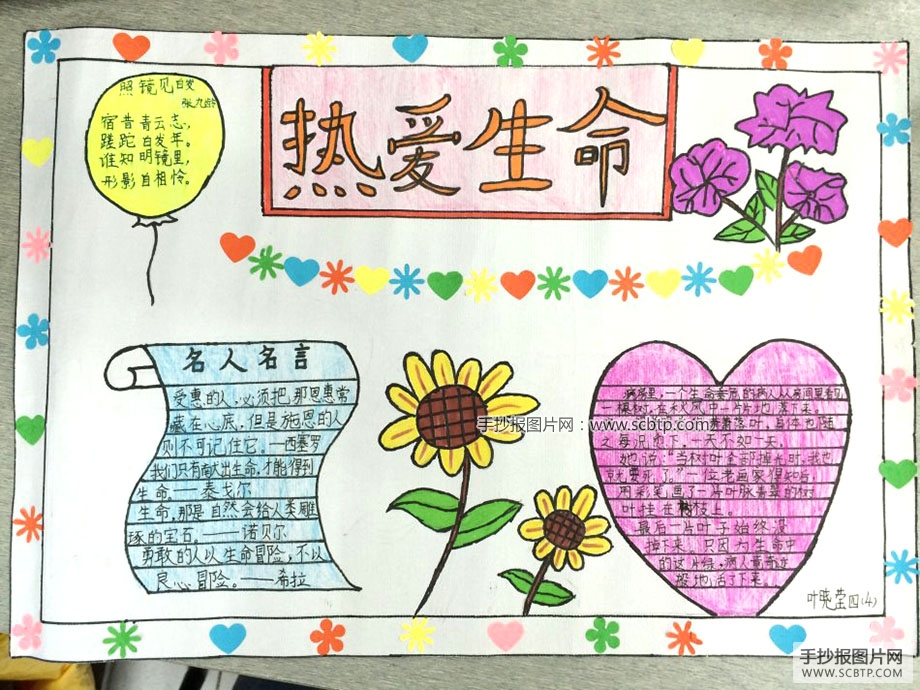 照镜见白发
张九龄
宿昔青云志，
蹉跎白发年。
谁知明镜里，
形影自相怜。
热爱生命
名人名言
受惠的人，必须把那恩惠常
藏在心底，但是施恩的人
则不可记住它。—西塞罗
我们只有献出生命，才能得到
生命。——泰戈尔
生命，那是自然会给人类雕
琢的宝石。——诺贝尔
勇敢的人以生命冒险，不以
良心冒险。——希拉
手抄报图片网：www.scbtp.com
病房里，一个生命垂危的病人从房间里看见
一棵树，在秋风中一片片地落下来。
萧萧落叶，身体也随
之每况愈下，一天不如一天。
她说："当树叶全部掉光时，我也
就要死了。"一位老画家得知后，
用彩笔画了一片叶脉青翠的树
叶挂在树枝上。
最后一片叶子始终没
掉下来。只因为生命中
的这片绿，病人竟奇迹
般地活了下来。
叶晓莹四(4)
手抄报图片网
WWW.SCBTP.COM